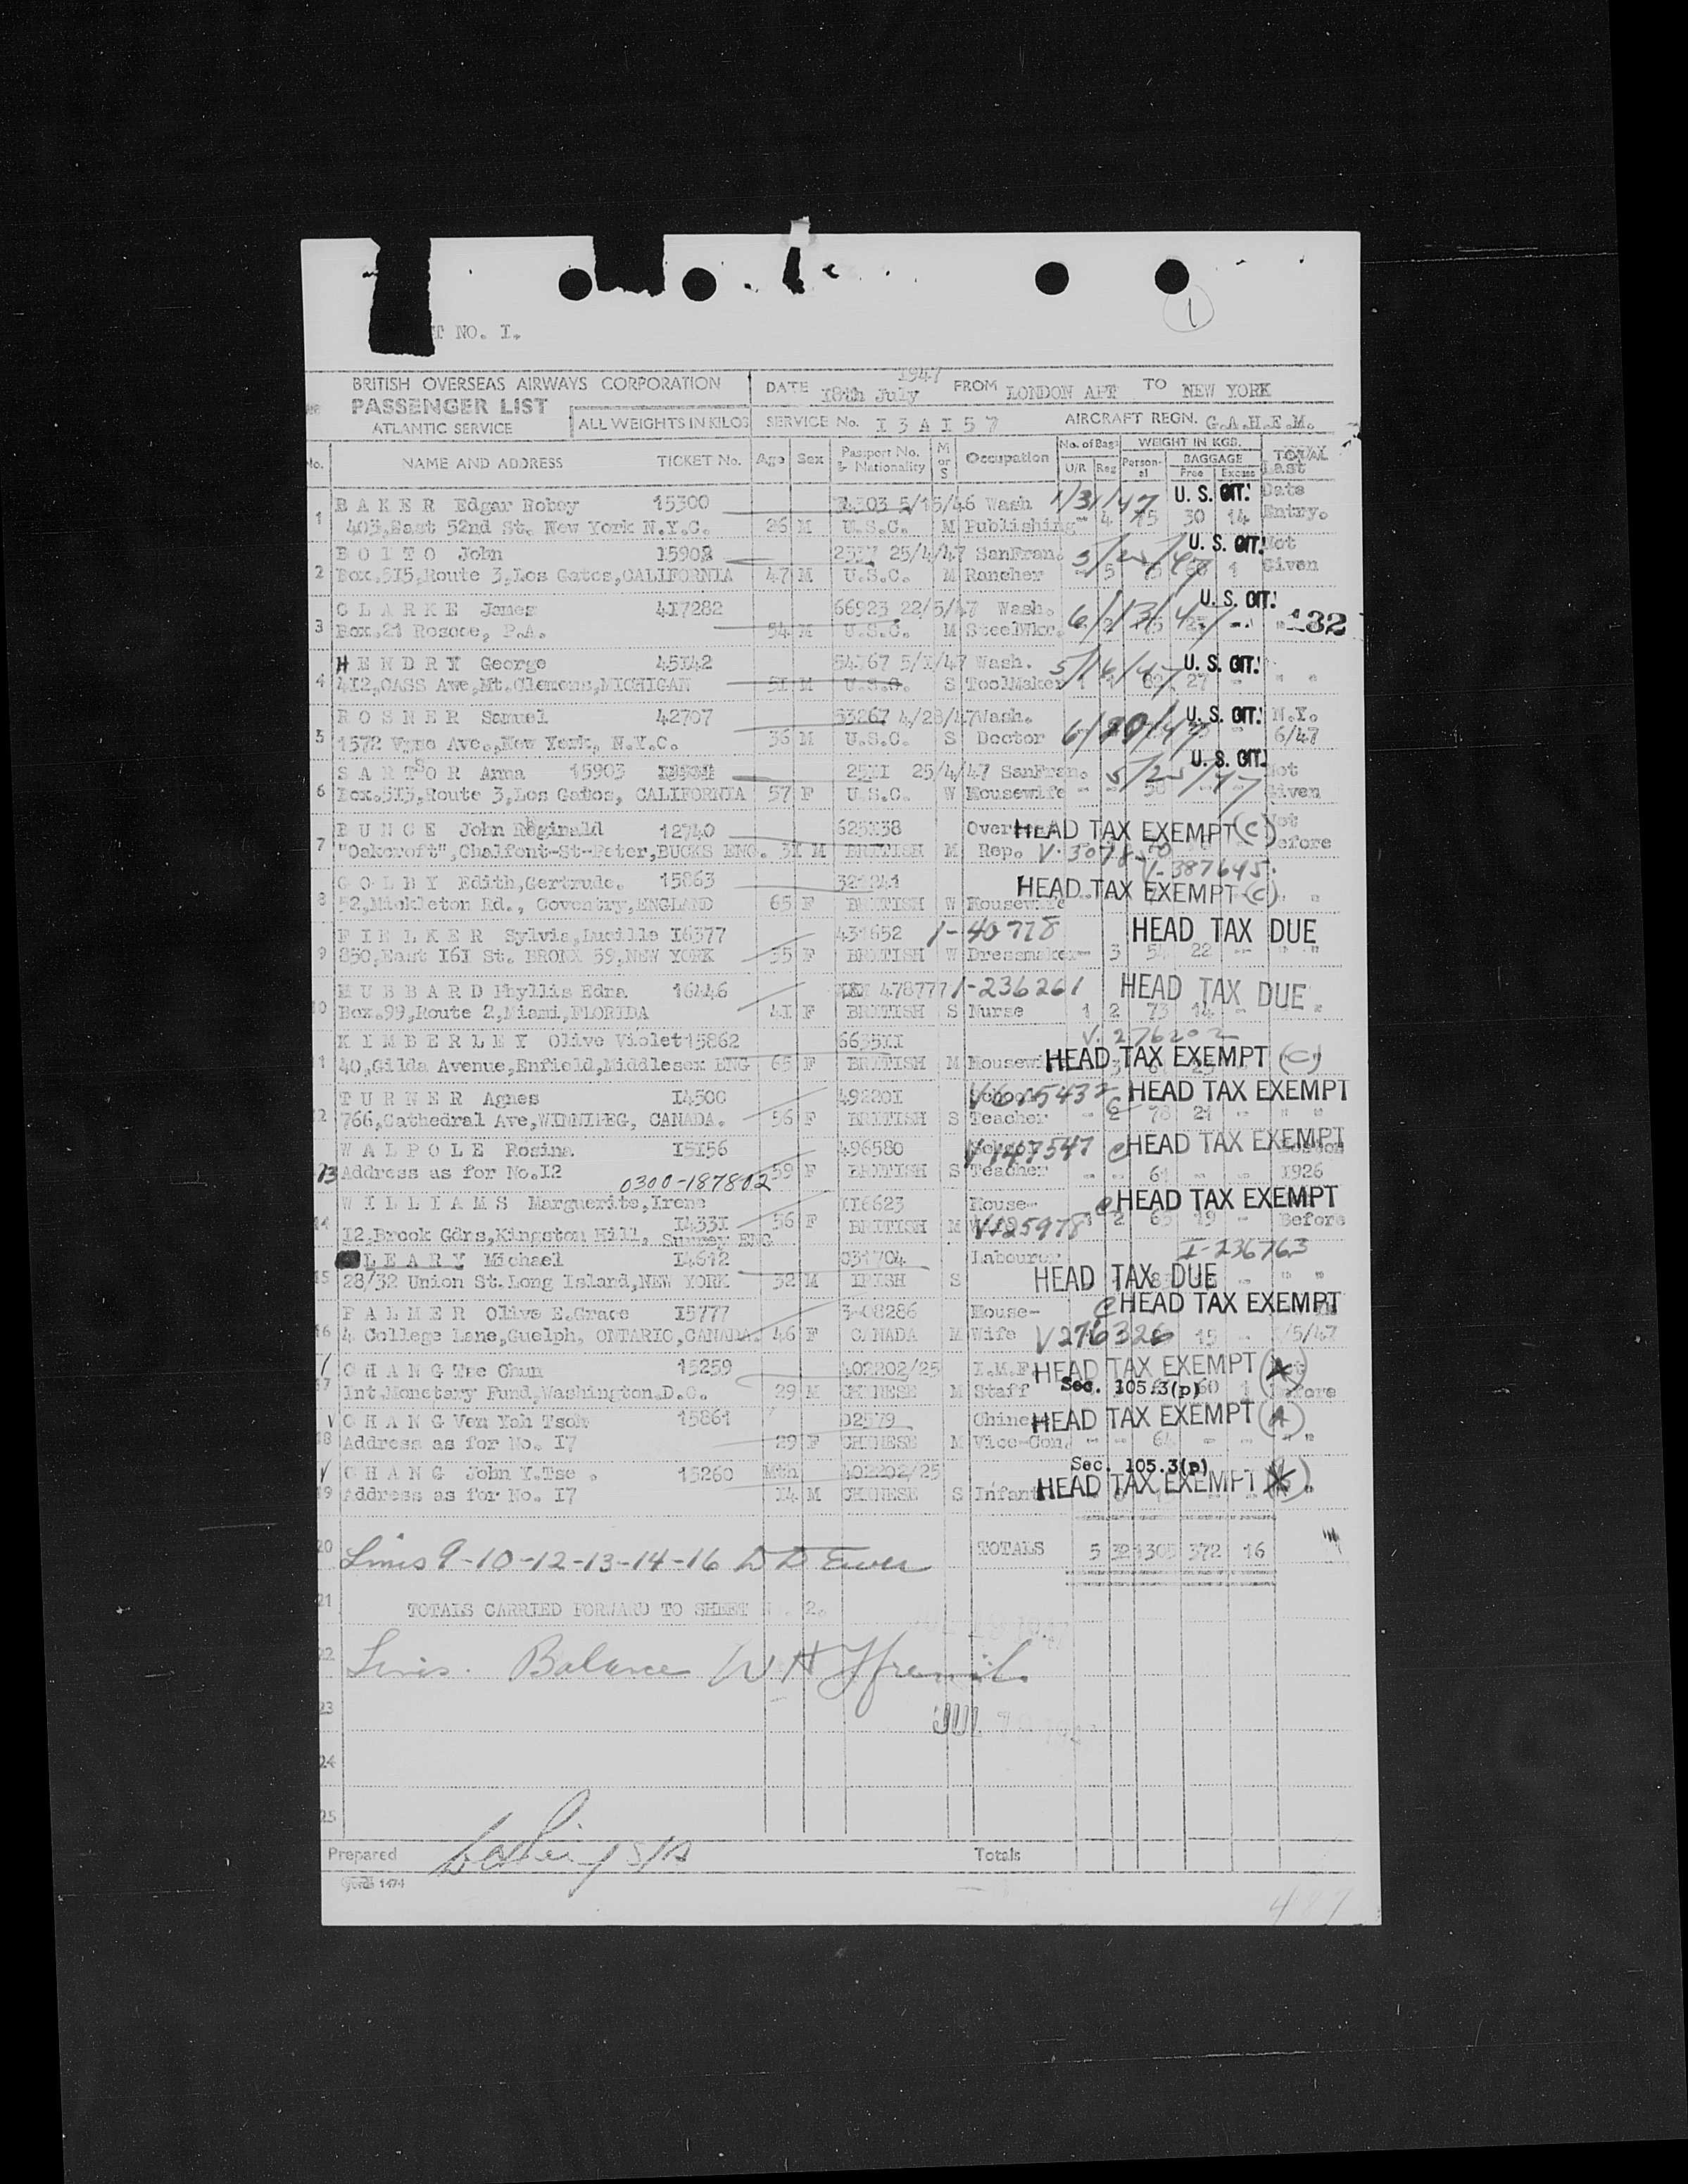 T NO. I.
1
BRITISH OVERSEAS AIRWAYS CORPORATION
PASSENGER LIST
ATLANTIC SERVICE
ALL WEIGHTS IN KILOS
DATE 18th July 1947 FROM LONDON APT TO NEW YORK
SERVICE No. I 3 A I 5 7 AIRCRAFT REGN. G.A.H.E.M.
No. NAME AND ADDRESS TICKET No. Age Sex Passport No. & Nationality M or S Occupation No. of Bags U/R Reg WEIGHT IN KGS. Person-al BAGGAGE Free Excess TOTAL
Last
1 B A K E R Edgar Robey 15300 5/15/46 Wash 1/31/47 U. S. CIT. Date
403,East 52nd St, New York N.Y.C. 26 M U.S.C. M Publishing - 4 75 30 14 Entry.
2 B O I T O John 15902 25/4/47 SanFran. 5/25/47 U. S. CIT. Not
Box.515,Route 3,Los Gatos,CALIFORNIA 47 M U.S.C. M Rancher - 5 1 Given
3 C L A R K E James 417282 66923 22/5/47 Wash. 6/13/47 U. S. CIT.
Box.21 Roscoe, P.A. 54 M U.S.C. M SteelWkr. 132
4 H E N D R Y George 45142 54767 5/1/47 Wash. 5/16/47 U. S. CIT.
412,CASS Ave,Mt.Clemens,MICHIGAN 51 M U.S.C. S ToolMaker 27 - " "
5 R O S N E R Samuel 42707 33267 4/28/47Wash. 6/20/47 U. S. CIT. N.Y.
1572 Vyse Ave.,New York, N.Y.C. 36 M U.S.C. S Doctor 6/47
6 S A R T O R Anna 15903 25II 25/4/47 SanFran. 5/25/47 U. S. CIT. Not
Box.515,Route 3,Los Gatos, CALIFORNIA 57 F U.S.C. W Housewife - - 58 Given
7 B U N C E John Reginald 12740 625138 HEAD TAX EXEMPT (C) Not
"Oakcroft",Chalfont-St-Peter,BUCKS ENG. 31 M BRITISH M Rep. Before
V-387645
8 G O L B Y Edith,Gertrude. 15863 HEAD TAX EXEMPT (C)
52,Mickleton Rd., Coventry,ENGLAND 65 F BRITISH W Housewife " "
9 F I E L K E R Sylvia,Lucille I6377 431652 1-40778 HEAD TAX DUE
850,East 161 St. BRONX 59,NEW YORK 55 F BRITISH W Dressmaker- 3 54 22 - " "
10 H U B B A R D Phyllis Edna 16446 478777 1-236261 HEAD TAX DUE
Box.99,Route 2,Miami,FLORIDA 41 F BRITISH S Nurse 1 2 73 14
V.276202
11 K I M B E R L E Y Olive Violet 15862 6635II HEAD TAX EXEMPT (C)
40,Gilda Avenue,Enfield,Middlesex ENG 65 F BRITISH M Housewife
12 T U R N E R Agnes I4500 49220I V615432 C HEAD TAX EXEMPT
766,Cathedral Ave,WINNIPEG, CANADA. 56 F BRITISH S Teacher - 2 78 21 - " "
13 W A L P O L E Rosina I5I56 496580 V147547 C HEAD TAX EXEMPT
Address as for No.I2 59 F BRITISH S Teacher - - 61 - 1926
0300-187802
14 W I L L I A M S Marguerite,Irene I433I II6623 House- C HEAD TAX EXEMPT
I2.Brook Gdns,Kingston Hill, Surrey ENG 56 F BRITISH M V125978 2 19 - Before
I-236763
15 L E A R Y Michael I4612 031704 Labourer HEAD TAX DUE
28/32 Union St.Long Island,NEW YORK 32 M IRISH S - " "
16 P A L M E R Olive E.Grace I5777 3-08286 House- C HEAD TAX EXEMPT
4 College Lane,Guelph, ONTARIO,CANADA. 46 F CANADA M Wife V276326 15 - /5/47
17 C H A N G Tse Chun 15259 402202/25 I.M.F. HEAD TAX EXEMPT
Int.Monetary Fund,Washington,D.C. 29 M CHINESE M Staff Sec. 105.3(p) 60 1 Before
18 C H A N G Ven Yoh Tsoh 15861 02579 Chinese HEAD TAX EXEMPT (A)
Address as for No. I7 29 F CHINESE M Vice-Con. - - 64 - - "
Sec. 105.3(p)
19 C H A N G John Y.Tse . 15260 Mth 402202/25 HEAD TAX EXEMPT
Address as for No. I7 14 M CHINESE S Infant
20 Lines 9-10-12-13-14-16 D D Ewer TOTALS 5 32 1305 372 16
21 TOTALS CARRIED FORWARD TO SHEET 2.
22 Lines. Balance W H
23 JUL
24
25
Prepared Totals
1474